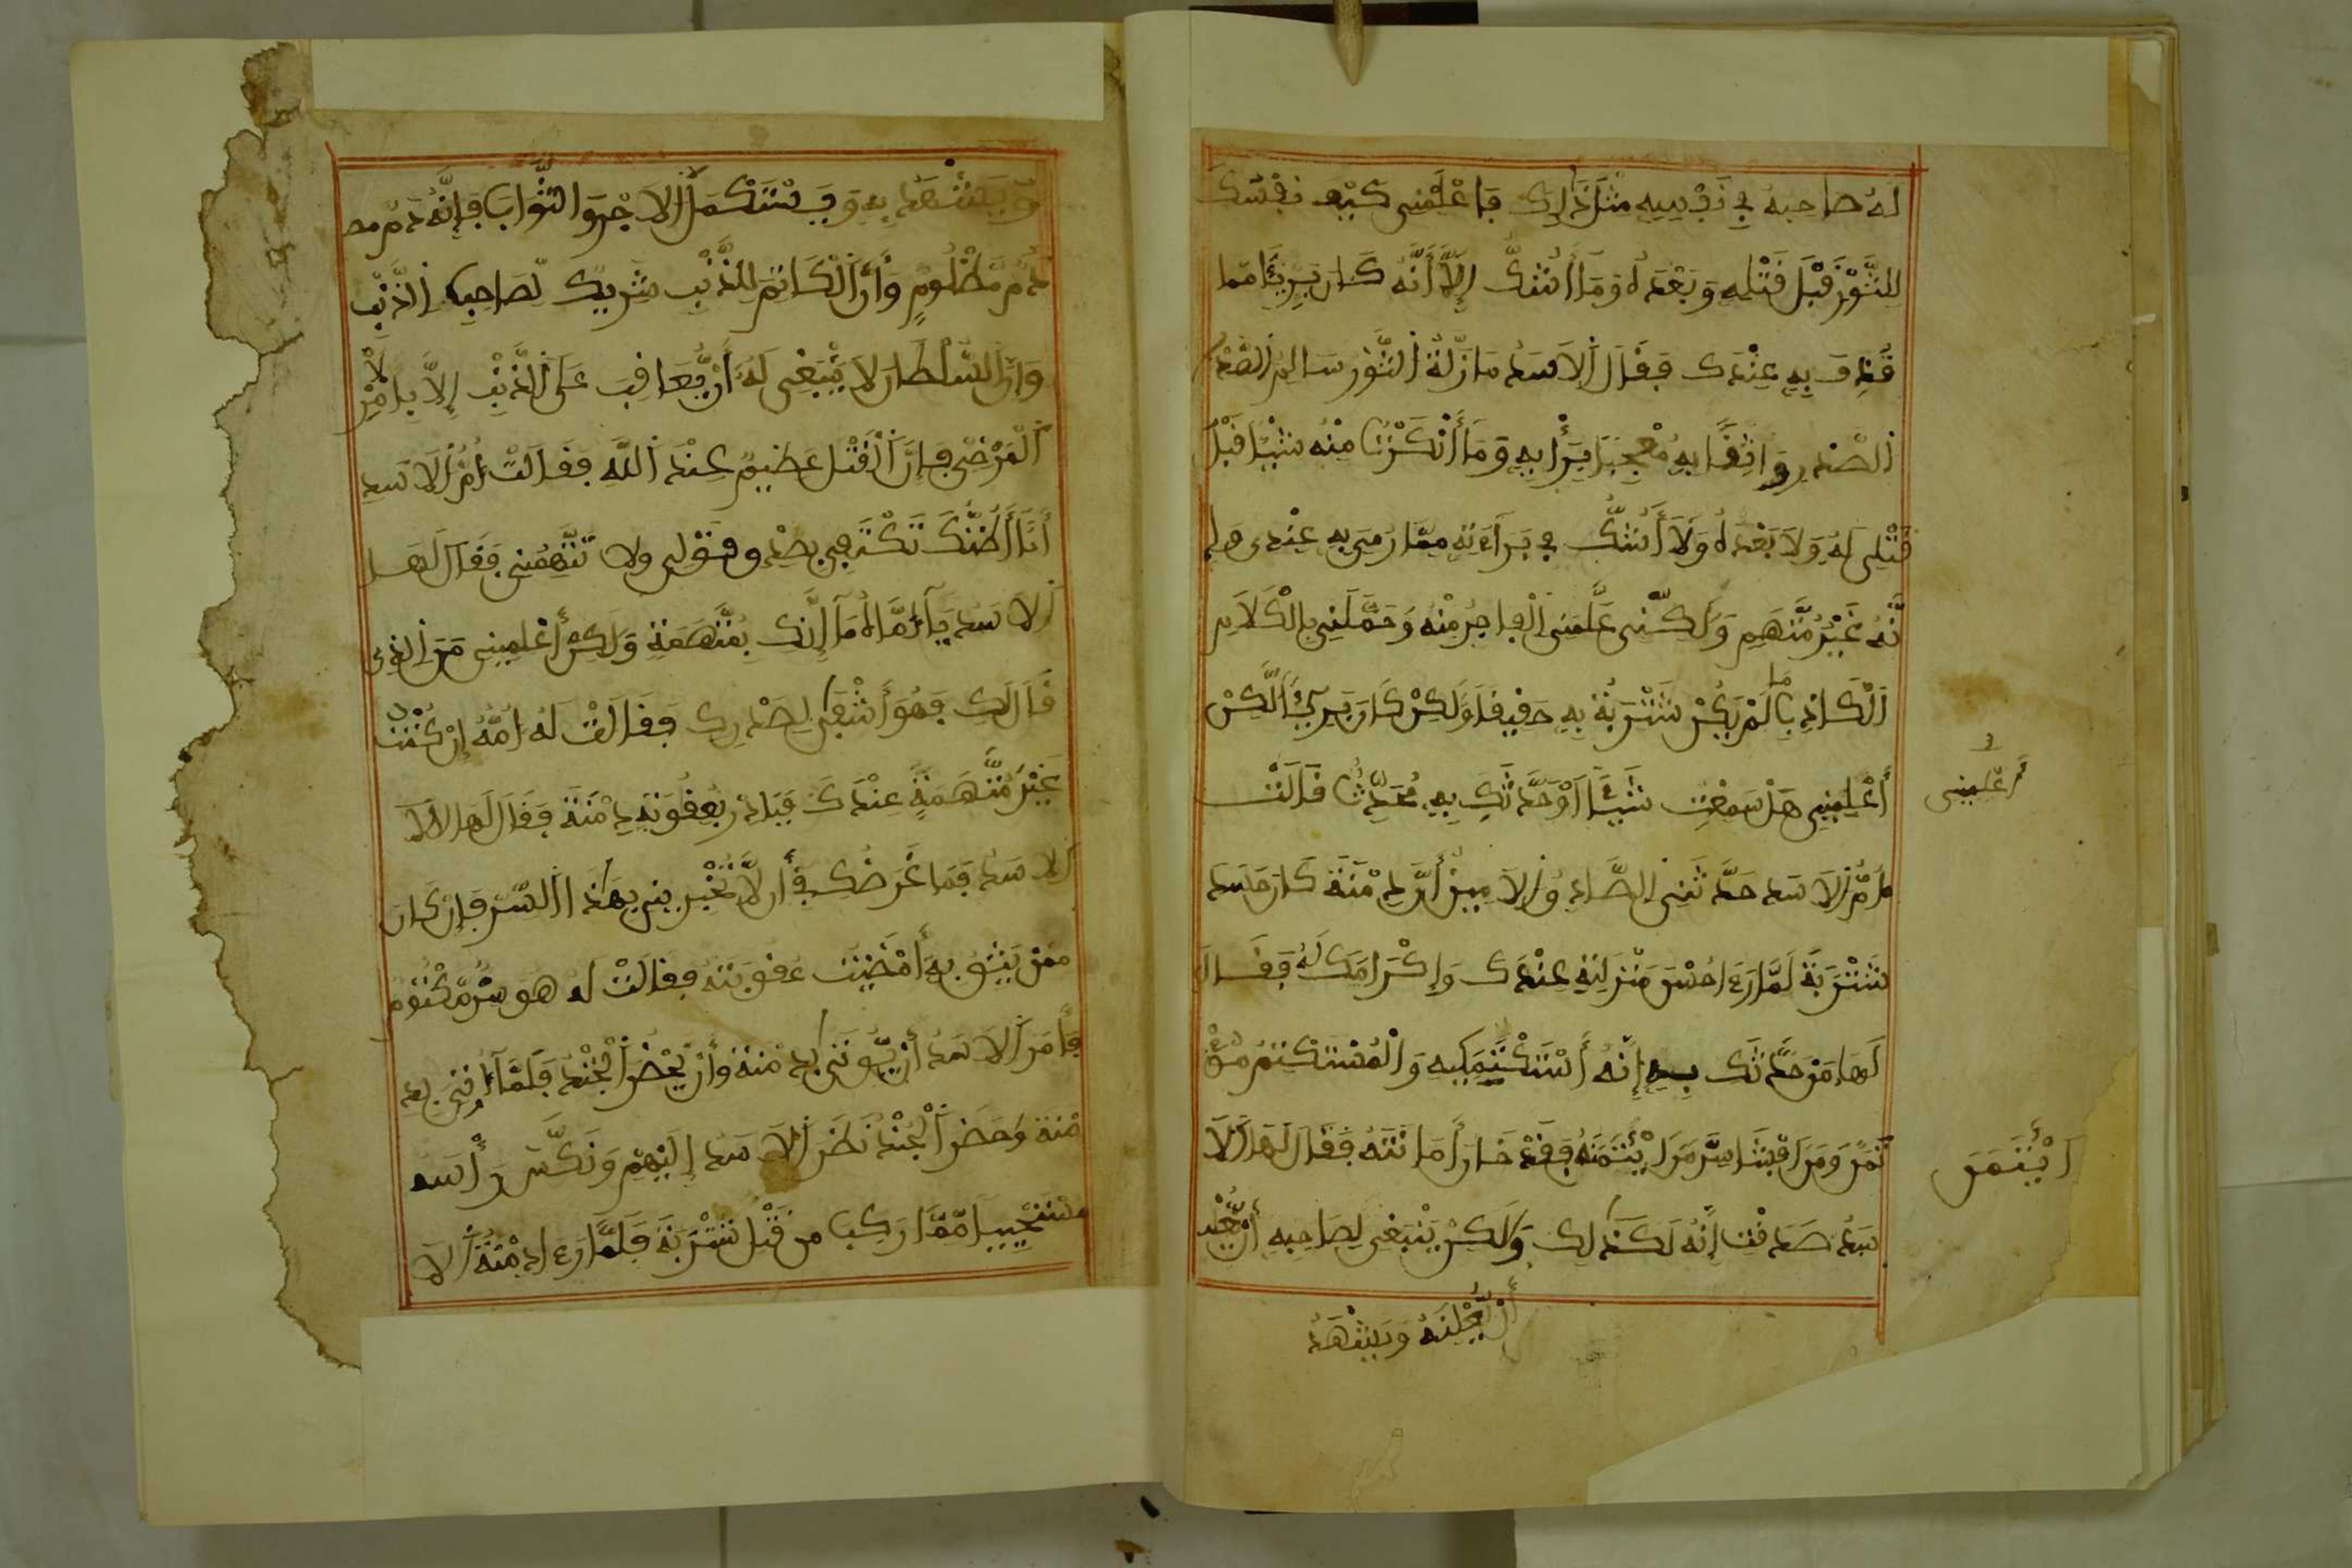 له صاحبه في نَفْسِهِ مثل ذَلِك فاعْلمني كيف نفسك
للثَّوْر قَبْلَ قَتْلِهِ وَبَعْدَهُ وَمَا أَشُكُّ إِلَّا أَنَّهُ كَانَ بَرِيئًا مما
قُذِفَ بِهِ عِنْدَكَ فقال الاسد ما زِلْتُ للثور سالم الصدر
الصدر واثقا به مُعْجِبًا بِرَأْيِهِ وَمَا أَنْكَرْتُ مِنْهُ شَيْئًا قَبْلَ
قَتْلِي لَهُ وَلَا بَعْدَهُ وَلَا أَشُكُّ في بَرَاءَتِهِ مِمَّا رُمِيَ بِهِ عِنْدِي
نَّهُ غَيْرُ مُتَّهَم وَلَكِنّني الْفاجِرُ مِنْهُ وَحَمَّلَنِي بِالْكَلَامِ
الْكَاذِبِ مَا لَمْ يَكُنْ شَتْرَبَةُ بِهِ حَقِيقًا وَلَكِنْ كَانَ بَرِيئًا لَّكِنْ
أَعْلِمِينِي هَلْ سَمِعْتِ شَيْئًا أَوْ حَدَّثَكِ بِهِ مُحَدِّثٌ قَالَتْ
أعْلِمِينِي
أمُّ الاسد حَدَّثَنِي الصَّادِقُ الامين أَنَّ دِمْنَةَ كَانَ حَسَدَ
شَتْرَبَةَ لَمَّا رَءَا حُسْنَ مَنْزِلَتِهِ عِنْدَكَ وَإِكْرَامَكَ لَهُ فَقَال
لَهَا مَنْ حَدَّثَكِ بِهِ إِنَّهُ أَسْتَكْتَمَنِيهِ وَالْمُسْتَكْتَمُ مُؤْ
تَمَنٌ وَمَنَ افْشَا سِرَّ مَنَ ايْتَمَنَهُ فَقَدْ خَانَ أَمَانَتَهُ فَقَالَ لَهَا الَا
ايْتَمَنَ
سَدُ صَدَقْتِ إِنَّهُ لَكَذَلِكَ وَلَكِنْ يَنْبَغِي لِصَاحِبِهِ أَنْ
أَنْ يُعْلِنَهُ وَيَشْهَدُ
وَيَشْهَدُ بِهِ وَيَسْتَكْمِلُ الاجْرَ وَالثَّوَابَ فَإِنَّهُ دَمٌ مظ
دَمُ مَّظْلُومٍ وَأَنَّ الْكَاتِمَ لِلذَّنْبِ شَرِيكٌ لِّصَاحِبِ الذَّنْبِ
وَإِنَّ السُّلْطَانَ لَا يَنْبَغِي لَهُ أَنْ يُّعَاقِبَ عَلَى الذَّنْبِ إِلَّا بِالْأَمْرِ
الْمَرْضِي فَإِنَّ الْقَتْلَ عَظِيمٌ عِنْدَ اللَّهِ فَقَالَتْ أمُّ الَاسَد
أَنَا أَظُنُّكَ تَكْتَفِي بصدق قَوْلِي ولا تَتَّهِمُنِي فَقَالَ لَهَا
الاسد يَا أُمَّاهُ مَا إِنَّكِ بِمُتَّهَمَةٍ وَلَكِنْ أَعْلِمِينِي مَنَ الذي
قَالَ لَكِ فَهُوَ أَشْفَى لِصَدْرِكِ فَقَالَتْ لَهُ أُمُّهُ إِنْ كُنْتُ
غَيْرَ مُتَّهَمَةٍ عِنْدَكَ فَبَادِرْ بِعُقُوبَةِ دِمْنَةَ فَقَالَ لَهَا الَا
الاسد فَمَا غَرَضُكِ فِي أَن لَّا تُخْبِرِينِي بِهَذَا السِّرِّ فَإِنْ كَان
مِمَّنْ يُثَقُ بِهِ أَمْضَيْتُ عُقُوبَتَهُ فَقَالَتْ لَهُ هُوَ سِرٌّ مَّكْتُومٌ
فَأَمَرَ الاسَدُ أَنْ يُّوتَى بِدِمْنَةَ وَأَنْ يَحْضُرَ الْجُنْدُ فَلَمَّا أُتِيَ بِد
مْنَةَ وَحَضَرَ الْجُنْدُ نَظَرَ الاسَدُ إِلَيْهِمْ وَنَكَّسَ رَأْسَهُ
مسْتَحْيِيًا مِّمَّا رَكِبَ مِن قَتْلِ شَتْرَبَةَ فَلَمَّا رَءَا دِمْنَةُ الا